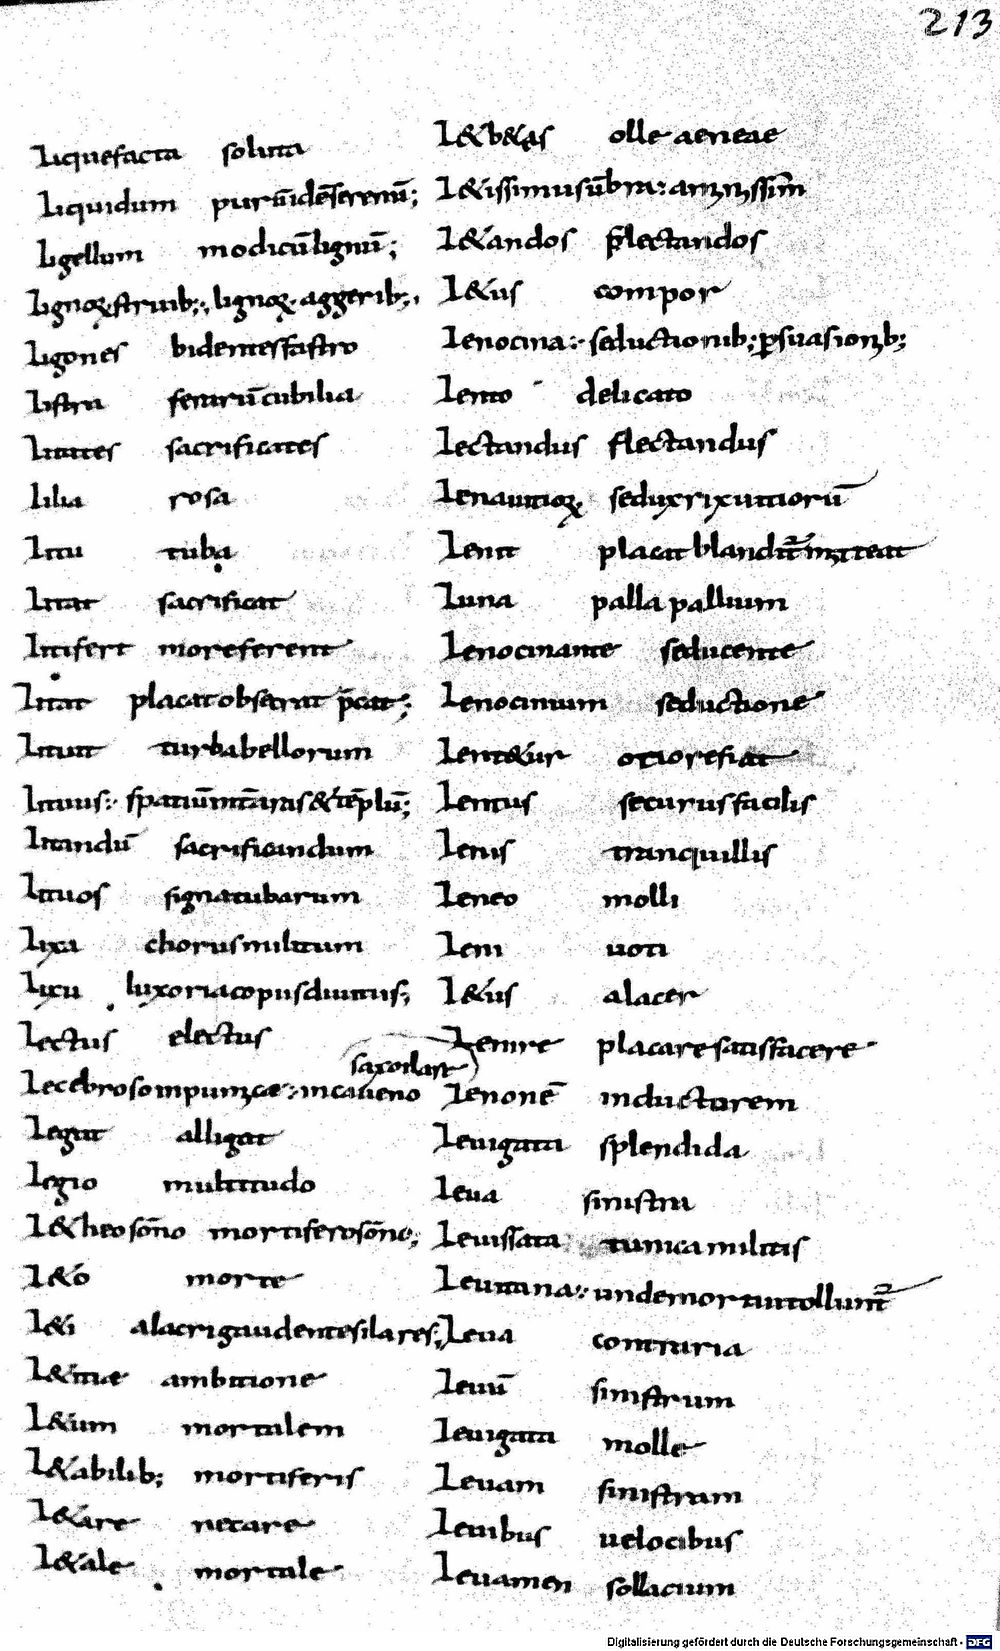 213
Liquefacta soluta
Liquidum purū uł idē serenū;
Ligellum modicū lignū;
Lignoꝝ struib; lignoꝝ aggerib;
Ligones bidentes rastro
Listra ferarū cubilia
Litates sacrificates
Lilia rosa
Litu tuba
Litat sacrificat
Litifert more ferent
Litat placat obsecrat p̄cat;
Lituit turba bellorum
Lituus: spatiū int aras & tēplū;
Litandū sacrificandum
Lituos signa tubarum
Lixa chorus militum
Lixu luxoria copus diuitus;
Lectus electus
saxoilast
Lecebroso inpumicæ: in cauerno
Legat alligat
Legio multitudo
L&heo sōno mortifero sōno;
L&o morte
L&i alacri gaudentes ilares;
L&itiæ ambitione
L&um mortalem
L&abilib; mortiferis
L&are necare
L&ale mortale
L&b&as olle aeneae
L&issimus
L&andos p̄lectandos
L&us compor
Lenocina: seductionib; ꝑsuasionib;
Lento delicato
Lectandus flectandus
Lenautioꝝ
Lenit placat blandit̄ mitteat
Luna palla pallium
Lenocinante seducente
Lenocinium seductione
Lent&ur otiorefiat
Lentus securus facilis
Lenis tranquillis
Leneo molli
Leni uoti
L&us alacer
Lenire placare satisfacere
Lenonē inductorem
Leuigata splendida
Leua sinistra
Leuissata tunica militis
Leuitana: unde mortui tollunt̄
Leua contraria
Leuū sinistrum
Leuigata molle
Leuam sinistram
Leuibus uelocibus
Leuamen sollacium
Digitalisierung gefördert durch die Deutsche Forschungsgemeinschaft - DFG